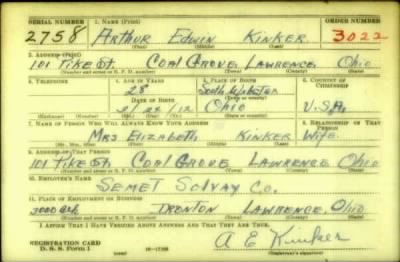 SERIAL NUMBER 1. NAME (Print) ORDER NUMBER
2758 ARTHUR EDWIN KINKER 3022
(First) (Middle) (Last)
2. ADDRESS (Print)
101 PIKE St. COAL GROVE, LAWRENCE, OHIO
(Number and street or R. F. D. number) (Town) (County) (State)
3. TELEPHONE 4. AGE IN YEARS 5. PLACE OF BIRTH 6. COUNTRY OF CITIZENSHIP
28 South Webster
DATE OF BIRTH
2/24/12 OHIO U.S.A.
(Mo.) (Day) (Yr.) (State or country)
7. NAME OF PERSON WHO WILL ALWAYS KNOW YOUR ADDRESS 8. RELATIONSHIP OF THAT PERSON
MRS ELIZABETH KINKER WIFE.
(Mr., Mrs., Miss) (First) (Middle) (Last)
9. ADDRESS OF THAT PERSON
101 PIKE St. COAL GROVE LAWRENCE OHIO
(Number and street or R. F. D. number) (Town) (County) (State)
10. EMPLOYER'S NAME
SEMET SOLVAY CO.
11. PLACE OF EMPLOYMENT OR BUSINESS
IRONTON LAWRENCE, OHIO
(Number and street or R. F. D. number) (Town) (County) (State)
I AFFIRM THAT I HAVE VERIFIED ABOVE ANSWERS AND THAT THEY ARE TRUE.
REGISTRATION CARD A E Kinker
D. S. S. Form 1 (Registrant's signature)